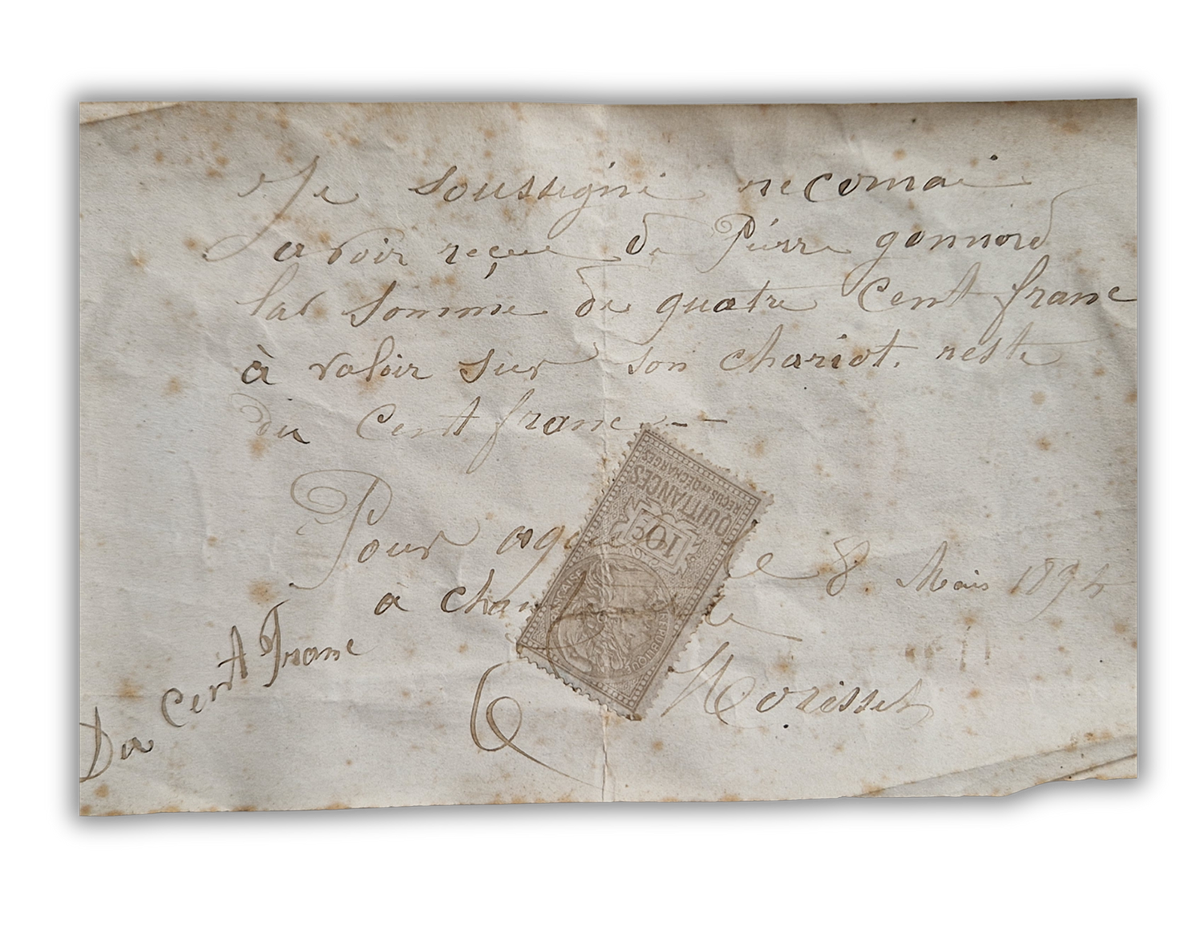 Je soussigné reconnai
avoir reçue de Pierre gonnord
la somme de quatre Cent franc
à valoir sur son chariot. reste
du Cent franc
QUITTANCES
REÇUS ET DÉCHARGES
10c
Pour le 8 Mais 1894
à
Morisset
Du Cent Franc